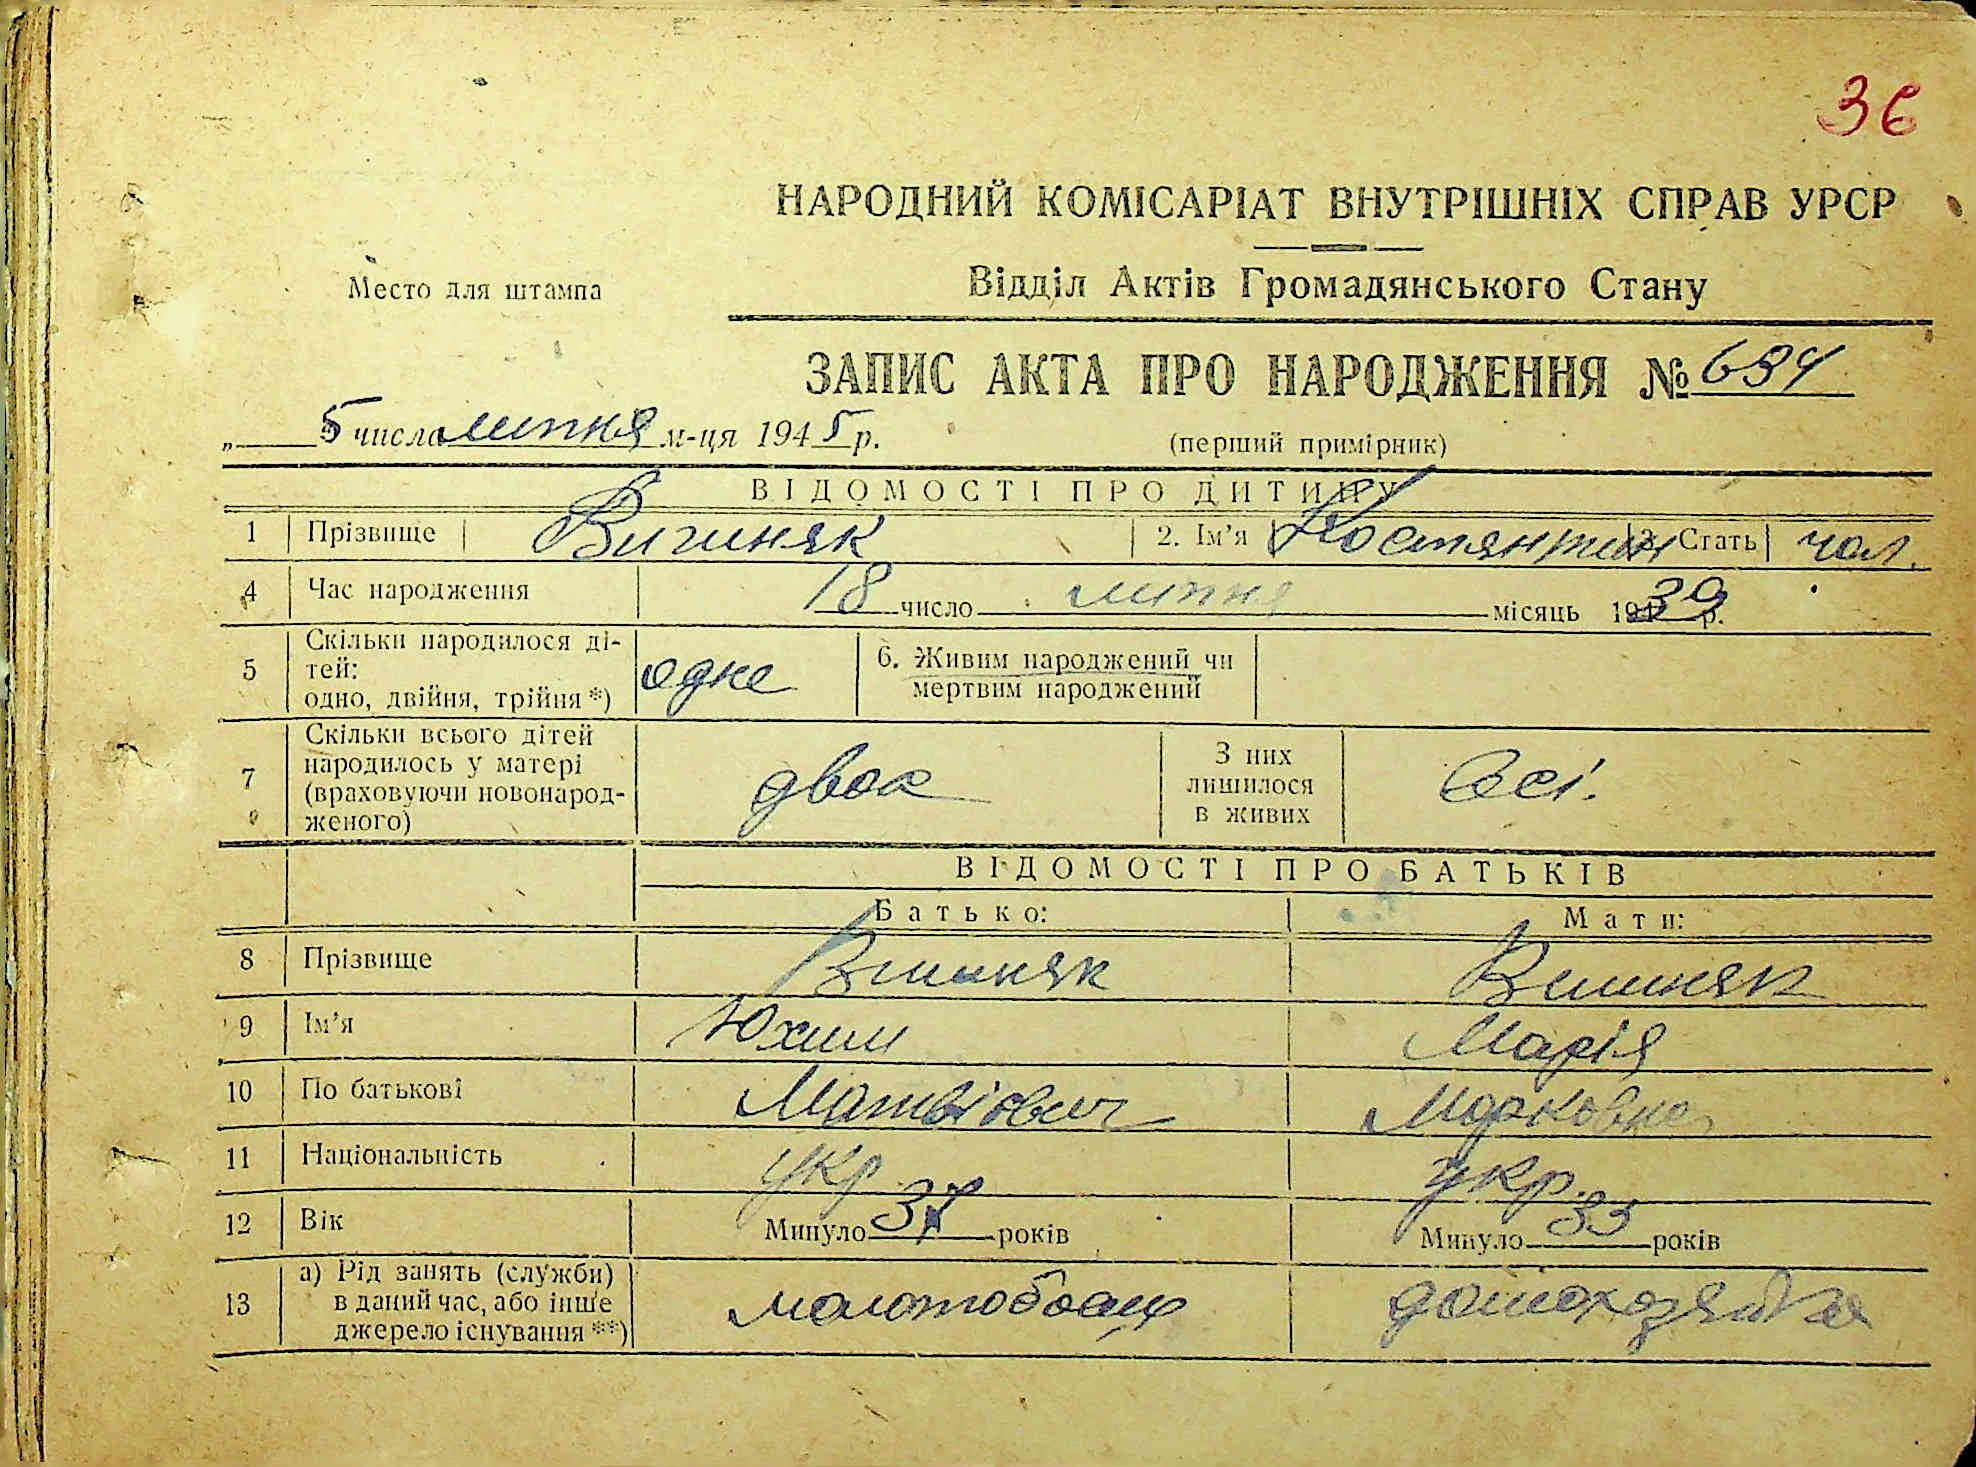 36
НАРОДНИЙ КОМІСАРІАТ ВНУТРІШНІХ СПРАВ УРСР
Место для штампа
Відділ Актів Громадянського Стану
ЗАПИС АКТА ПРО НАРОДЖЕННЯ № 634
„ 5 числа липня м-ця 1945 р. (перший примірник)
ВІДОМОСТІ ПРО ДИТИНУ
1 Прізвище Вишняк 2. Ім'я Костянтин 3. Стать чол.
4 Час народження 18 число липня місяць 1939 р.
5 Скільки народилося ді-
тей:
одно, двійня, трійня *) одне
6. Живим народжений чи
мертвим народжений
7 Скільки всього дітей
народилось у матері
(враховуючи новонарод-
женого) двоє
З них
лишилося
в живих всі.
ВІДОМОСТІ ПРО БАТЬКІВ
Батько: Мати:
8 Прізвище Вишняк Вишняк
9 Ім'я Юхим Марія
10 По батькові Матвійович Марковна
11 Національність укр укр.
12 Вік Минуло 37 років Минуло 33 років
13 а) Рід занять (служби)
в даний час, або інше
джерело існування **) молотобоєць домохозяйка